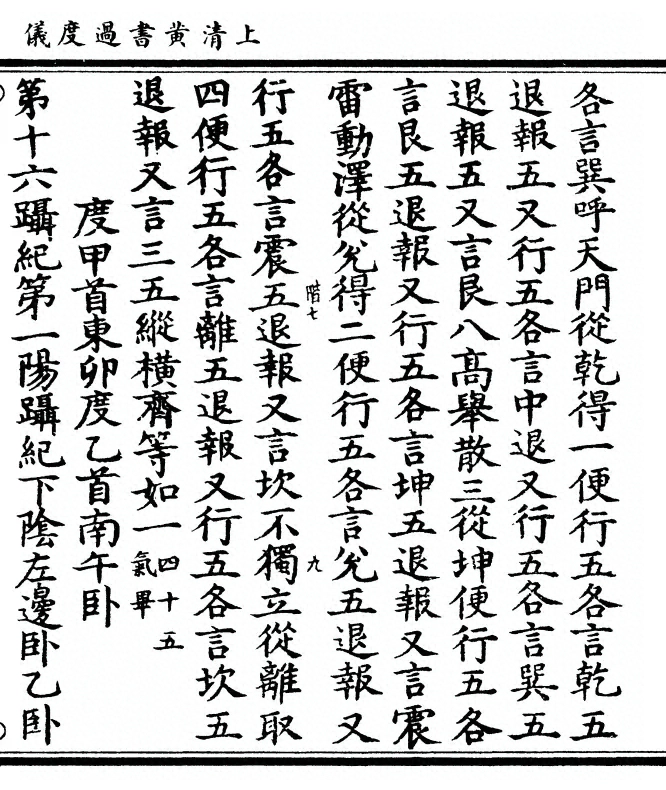 上清黄書過度儀
各言巽呼天門從乾得一便行五各言乾五
退報五又行五各言中退又行五各言巽五
退報五又言艮八高舉散三從坤便行五各
言艮五退報又行五各言坤五退報又言震
雷動澤從兊得二便行五各言兊五退報又
行五各言震五退報又言坎不獨立從離取
階七
九
四便行五各言離五退報又行五各言坎五
退報又言三五縱橫齊等如一四十五氣畢
度甲首東卯度乙首南午卧
第十六躡紀第一陽躡紀下陰左邊卧乙卧